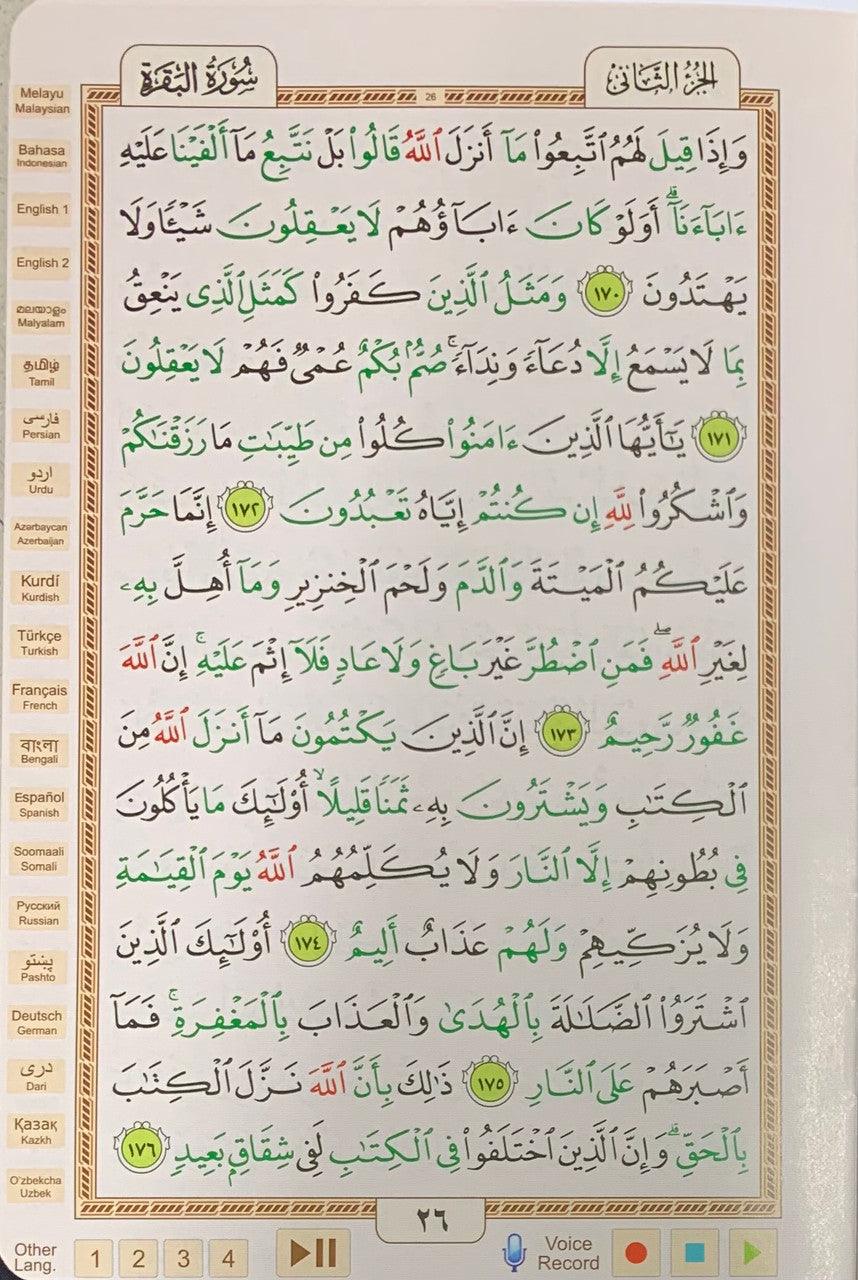 سُورَةُ البَقَرَةِ
الجُزْءُ الثَّانِى
26
وَإِذَا قِيلَ لَهُمُ ٱتَّبِعُوا۟ مَآ أَنزَلَ ٱللَّهُ قَالُوا۟ بَلْ نَتَّبِعُ مَآ أَلْفَيْنَا عَلَيْهِ
ءَابَآءَنَآ ۗ أَوَلَوْ كَانَ ءَابَآؤُهُمْ لَا يَعْقِلُونَ شَيْـًٔا وَلَا
يَهْتَدُونَ ١٧٠ وَمَثَلُ ٱلَّذِينَ كَفَرُوا۟ كَمَثَلِ ٱلَّذِى يَنْعِقُ
بِمَا لَا يَسْمَعُ إِلَّا دُعَآءً وَنِدَآءً ۚ صُمٌّۢ بُكْمٌ عُمْىٌ فَهُمْ لَا يَعْقِلُونَ
١٧١ يَـٰٓأَيُّهَا ٱلَّذِينَ ءَامَنُوا۟ كُلُوا۟ مِن طَيِّبَـٰتِ مَا رَزَقْنَـٰكُمْ
وَٱشْكُرُوا۟ لِلَّهِ إِن كُنتُمْ إِيَّاهُ تَعْبُدُونَ ١٧٢ إِنَّمَا حَرَّمَ
عَلَيْكُمُ ٱلْمَيْتَةَ وَٱلدَّمَ وَلَحْمَ ٱلْخِنزِيرِ وَمَآ أُهِلَّ بِهِۦ
لِغَيْرِ ٱللَّهِ ۖ فَمَنِ ٱضْطُرَّ غَيْرَ بَاغٍ وَلَا عَادٍ فَلَآ إِثْمَ عَلَيْهِ ۚ إِنَّ ٱللَّهَ
غَفُورٌ رَّحِيمٌ ١٧٣ إِنَّ ٱلَّذِينَ يَكْتُمُونَ مَآ أَنزَلَ ٱللَّهُ مِنَ
ٱلْكِتَـٰبِ وَيَشْتَرُونَ بِهِۦ ثَمَنًا قَلِيلًا ۙ أُو۟لَـٰٓئِكَ مَا يَأْكُلُونَ
فِى بُطُونِهِمْ إِلَّا ٱلنَّارَ وَلَا يُكَلِّمُهُمُ ٱللَّهُ يَوْمَ ٱلْقِيَـٰمَةِ
وَلَا يُزَكِّيهِمْ وَلَهُمْ عَذَابٌ أَلِيمٌ ١٧٤ أُو۟لَـٰٓئِكَ ٱلَّذِينَ
ٱشْتَرَوُا۟ ٱلضَّلَـٰلَةَ بِٱلْهُدَىٰ وَٱلْعَذَابَ بِٱلْمَغْفِرَةِ ۚ فَمَآ
أَصْبَرَهُمْ عَلَى ٱلنَّارِ ١٧٥ ذَٰلِكَ بِأَنَّ ٱللَّهَ نَزَّلَ ٱلْكِتَـٰبَ
بِٱلْحَقِّ ۗ وَإِنَّ ٱلَّذِينَ ٱخْتَلَفُوا۟ فِى ٱلْكِتَـٰبِ لَفِى شِقَاقٍۭ بَعِيدٍ ١٧٦
٢٦
Melayu
Malaysian
Bahasa
Indonesian
English 1
English 2
മലയാളം
Malyalam
தமிழ்
Tamil
فارسی
Persian
اردو
Urdu
Azərbaycan
Azerbaijan
Kurdí
Kurdish
Türkçe
Turkish
Français
French
বাংলা
Bengali
Español
Spanish
Soomaali
Somali
Русский
Russian
پښتو
Pashto
Deutsch
German
دری
Dari
Қазақ
Kazkh
O'zbekcha
Uzbek
Other
Lang.
1 2 3 4
Voice
Record